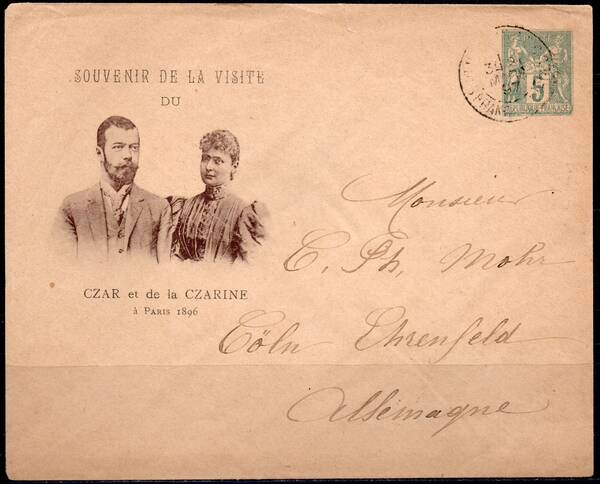 SOUVENIR DE LA VISITE
DU
CZAR et de la CZARINE
à PARIS 1896
5
REPUBLIQUE FRANCAISE
Monsieur
C. Ph. Mohr
Cöln Ehrenfeld
Allemagne